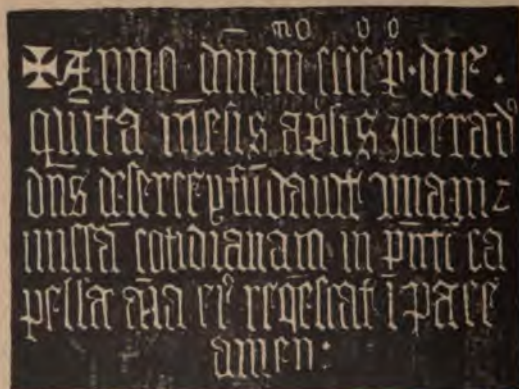 ✠ Anno dñi m cccc die
quīta mēsis aplis
dñs de sercey fūdavit
missā cotidianam in pñti ca
pella aīa eiꝰ reqescat ī pace
amen: